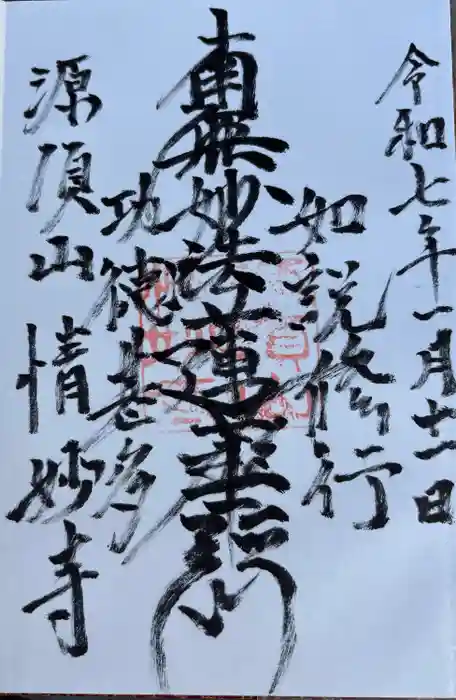 令和七年一月十一日
如説修行
南無妙法蓮華経
功徳甚多
源頂山情妙寺